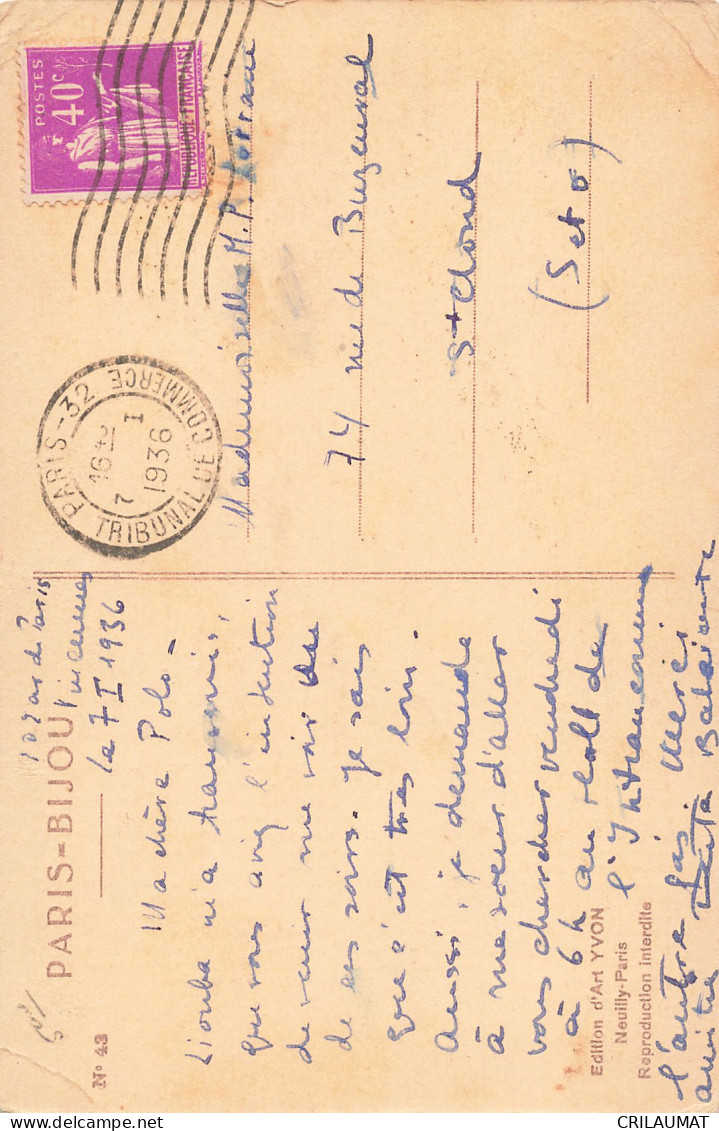 PARIS-BIJOU
N° 43
102 av de Paris
Vincennes
le 7 I 1936
Ma chère Polo-
Liouba m'a transmis,
que vous avez l'intention
de venir me voir un
de ces soirs. Je sais
que c'est très loin.
Aussi, je demande
à ma soeur d'aller
vous chercher vendredi
à 6h au de
l'Intran
l'autre fois Merci
amitiés
Edition d'Art YVON
Neuilly-Paris
Reproduction interdite
POSTES
40c
REPUBLIQUE FRANÇAISE
PARIS-32
TRIBUNAL DE COMMERCE
16H
7 I
1936
Mademoiselle M.P.
74 rue de Buzenval
St Cloud
(S et O)
CRILAUMAT